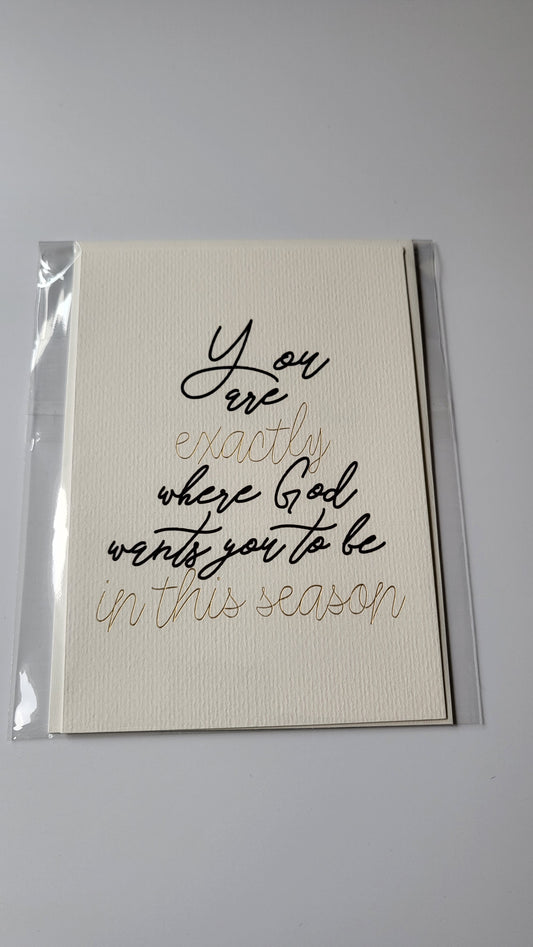 You
are
exactly
where God
wants you to be
in this season